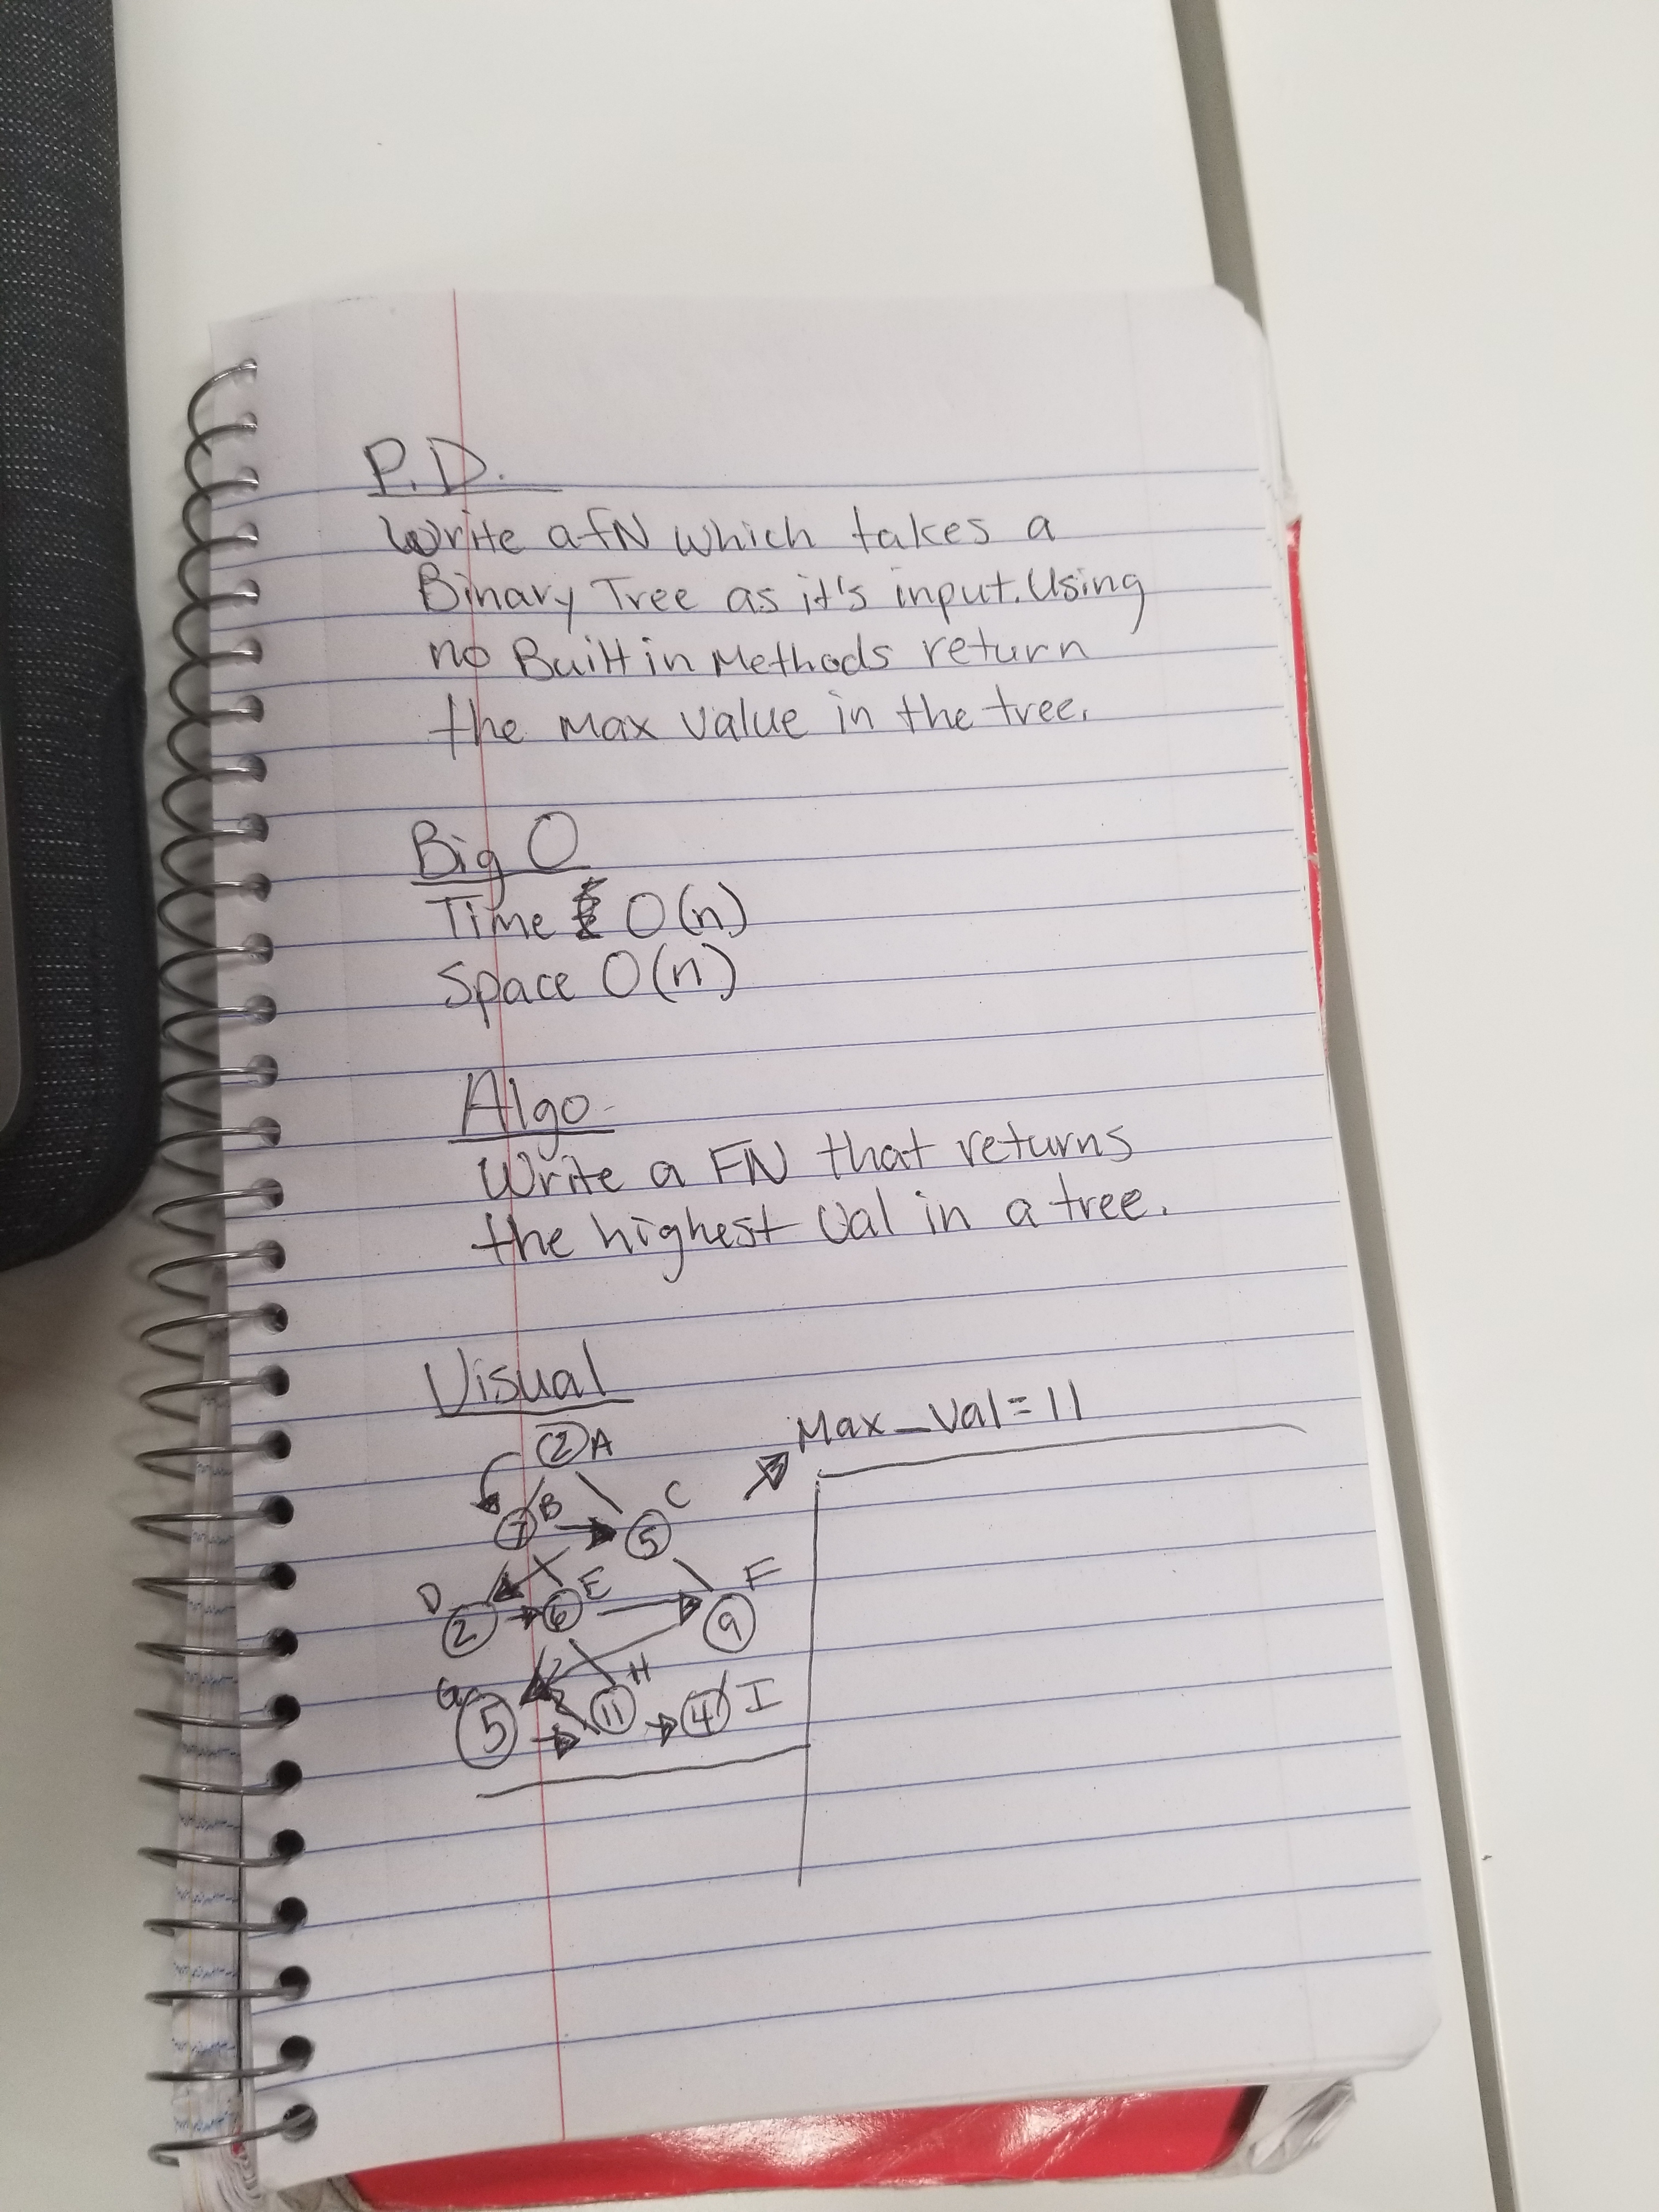 P.D.
Write a fN which takes a
Binary Tree as it's input. Using
no Built in Methods return
the Max Value in the tree.
Big O
Time O(n)
Space O(n)
Algo
Write a FN that returns
the highest Val in a tree.
Visual
Max_Val=11
2 A
7 B 5 C
D 2 6 E 9 F
G 5 11 H 4 I